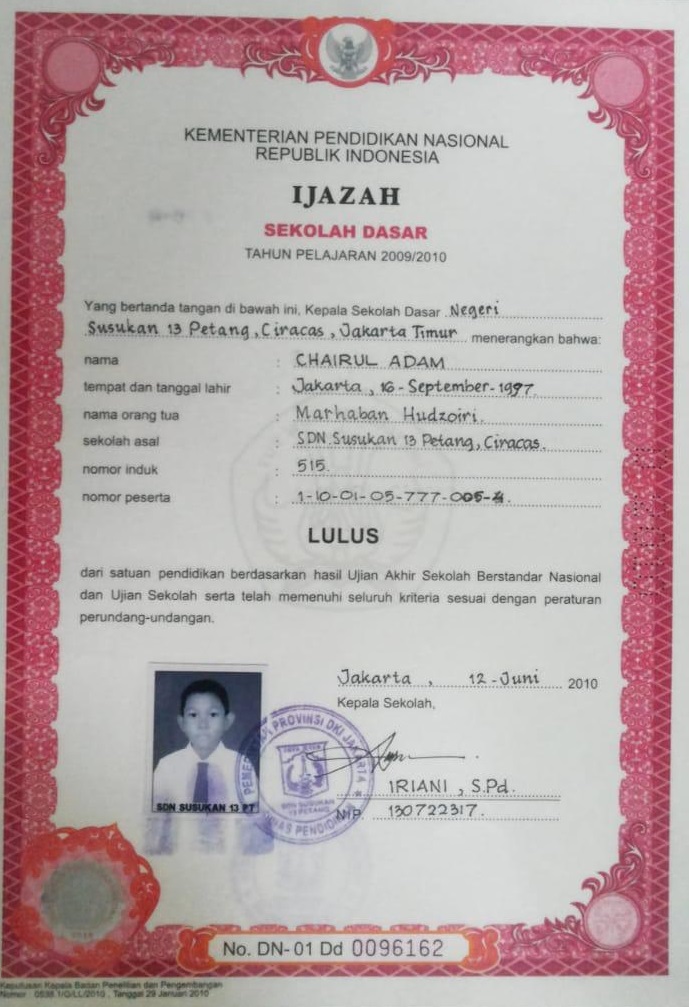 KEMENTERIAN PENDIDIKAN NASIONAL
REPUBLIK INDONESIA
IJAZAH
SEKOLAH DASAR
TAHUN PELAJARAN 2009/2010
Yang bertanda tangan di bawah ini, Kepala Sekolah Dasar Negeri
Susukan 13 Petang, Ciracas, Jakarta Timur menerangkan bahwa:
nama : CHAIRUL ADAM
tempat dan tanggal lahir : Jakarta, 16-September-1997
nama orang tua : Marhaban Hudzoiri.
sekolah asal : SDN Susukan 13 Petang, Ciracas.
nomor induk : 515.
nomor peserta : 1-10-01-05-777-005-4.
LULUS
dari satuan pendidikan berdasarkan hasil Ujian Akhir Sekolah Berstandar Nasional
dan Ujian Sekolah serta telah memenuhi seluruh kriteria sesuai dengan peraturan
perundang-undangan.
Jakarta, 12-Juni 2010
Kepala Sekolah,
PEMERINTAH PROVINSI DKI JAKARTA
JAYA RAYA
SDN SUSUKAN
13 PETANG
DINAS PENDIDIKAN
IRIANI, S.Pd.
NIP. 130722317.
SDN SUSUKAN 13 PT
No. DN-01 Dd 0096162
Keputusan Kepala Badan Penelitian dan Pengembangan